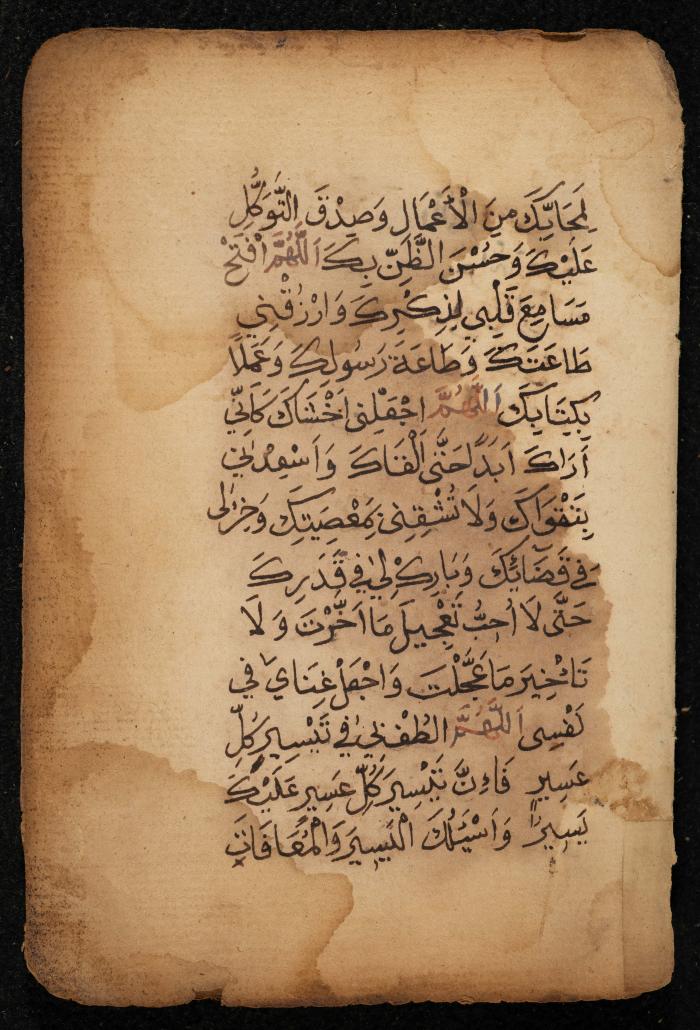 لِمَحَابِّكَ مِنَ الْأَعْمَالِ وَصِدْقَ التَّوَكُّلِ
عَلَيْكَ وَحُسْنَ الظَّنِّ بِكَ اَللّٰهُمَّ افْتَحْ
مَسَامِعَ قَلْبِي لِذِكْرِكَ وَارْزُقْنِي
طَاعَتَكَ وَطَاعَةَ رَسُولِكَ وَعَمَلًا
بِكِتَابِكَ اَللّٰهُمَّ اجْعَلْنِي اَخْشَاكَ كَاَنِّي
اَرَاكَ اَبَدًا حَتَّى اَلْقَاكَ وَاَسْعِدْنِي
بِتَقْوَاكَ وَلَا تُشْقِنِي بِمَعْصِيَتِكَ وَخِرْ لِي
فِي قَضَائِكَ وَبَارِكْ لِي فِي قَدَرِكَ
حَتَّى لَا اُحِبُّ تَعْجِيلَ مَا اَخَّرْتَ وَلَا
تَأْخِيرَ مَا عَجَّلْتَ وَاجْعَلْ غِنَايَ فِي
نَفْسِي اَللّٰهُمَّ الْطُفْ بِي فِي تَيْسِيرِ كُلِّ
عَسِيرٍ فَاِنَّ تَيْسِيرَ كُلِّ عَسِيرٍ عَلَيْكَ
يَسِيرٌ وَاَسْئَلُكَ الْيَسِيرَ وَالْمُعَافَاتَ